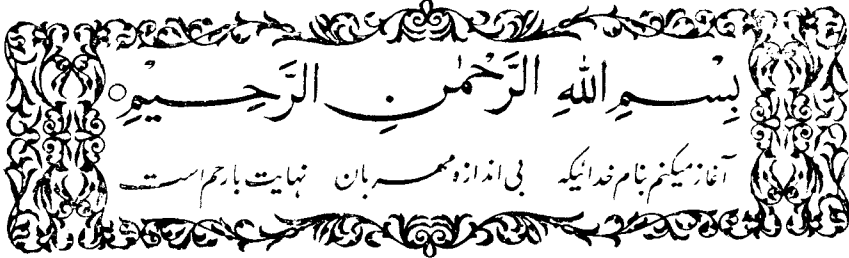 بِسْمِ اللهِ الرَّحْمٰنِ الرَّحِيْمِ
آغاز میکنم بنام خدائیکه بی اندازه مهربان نهایت بارحم است